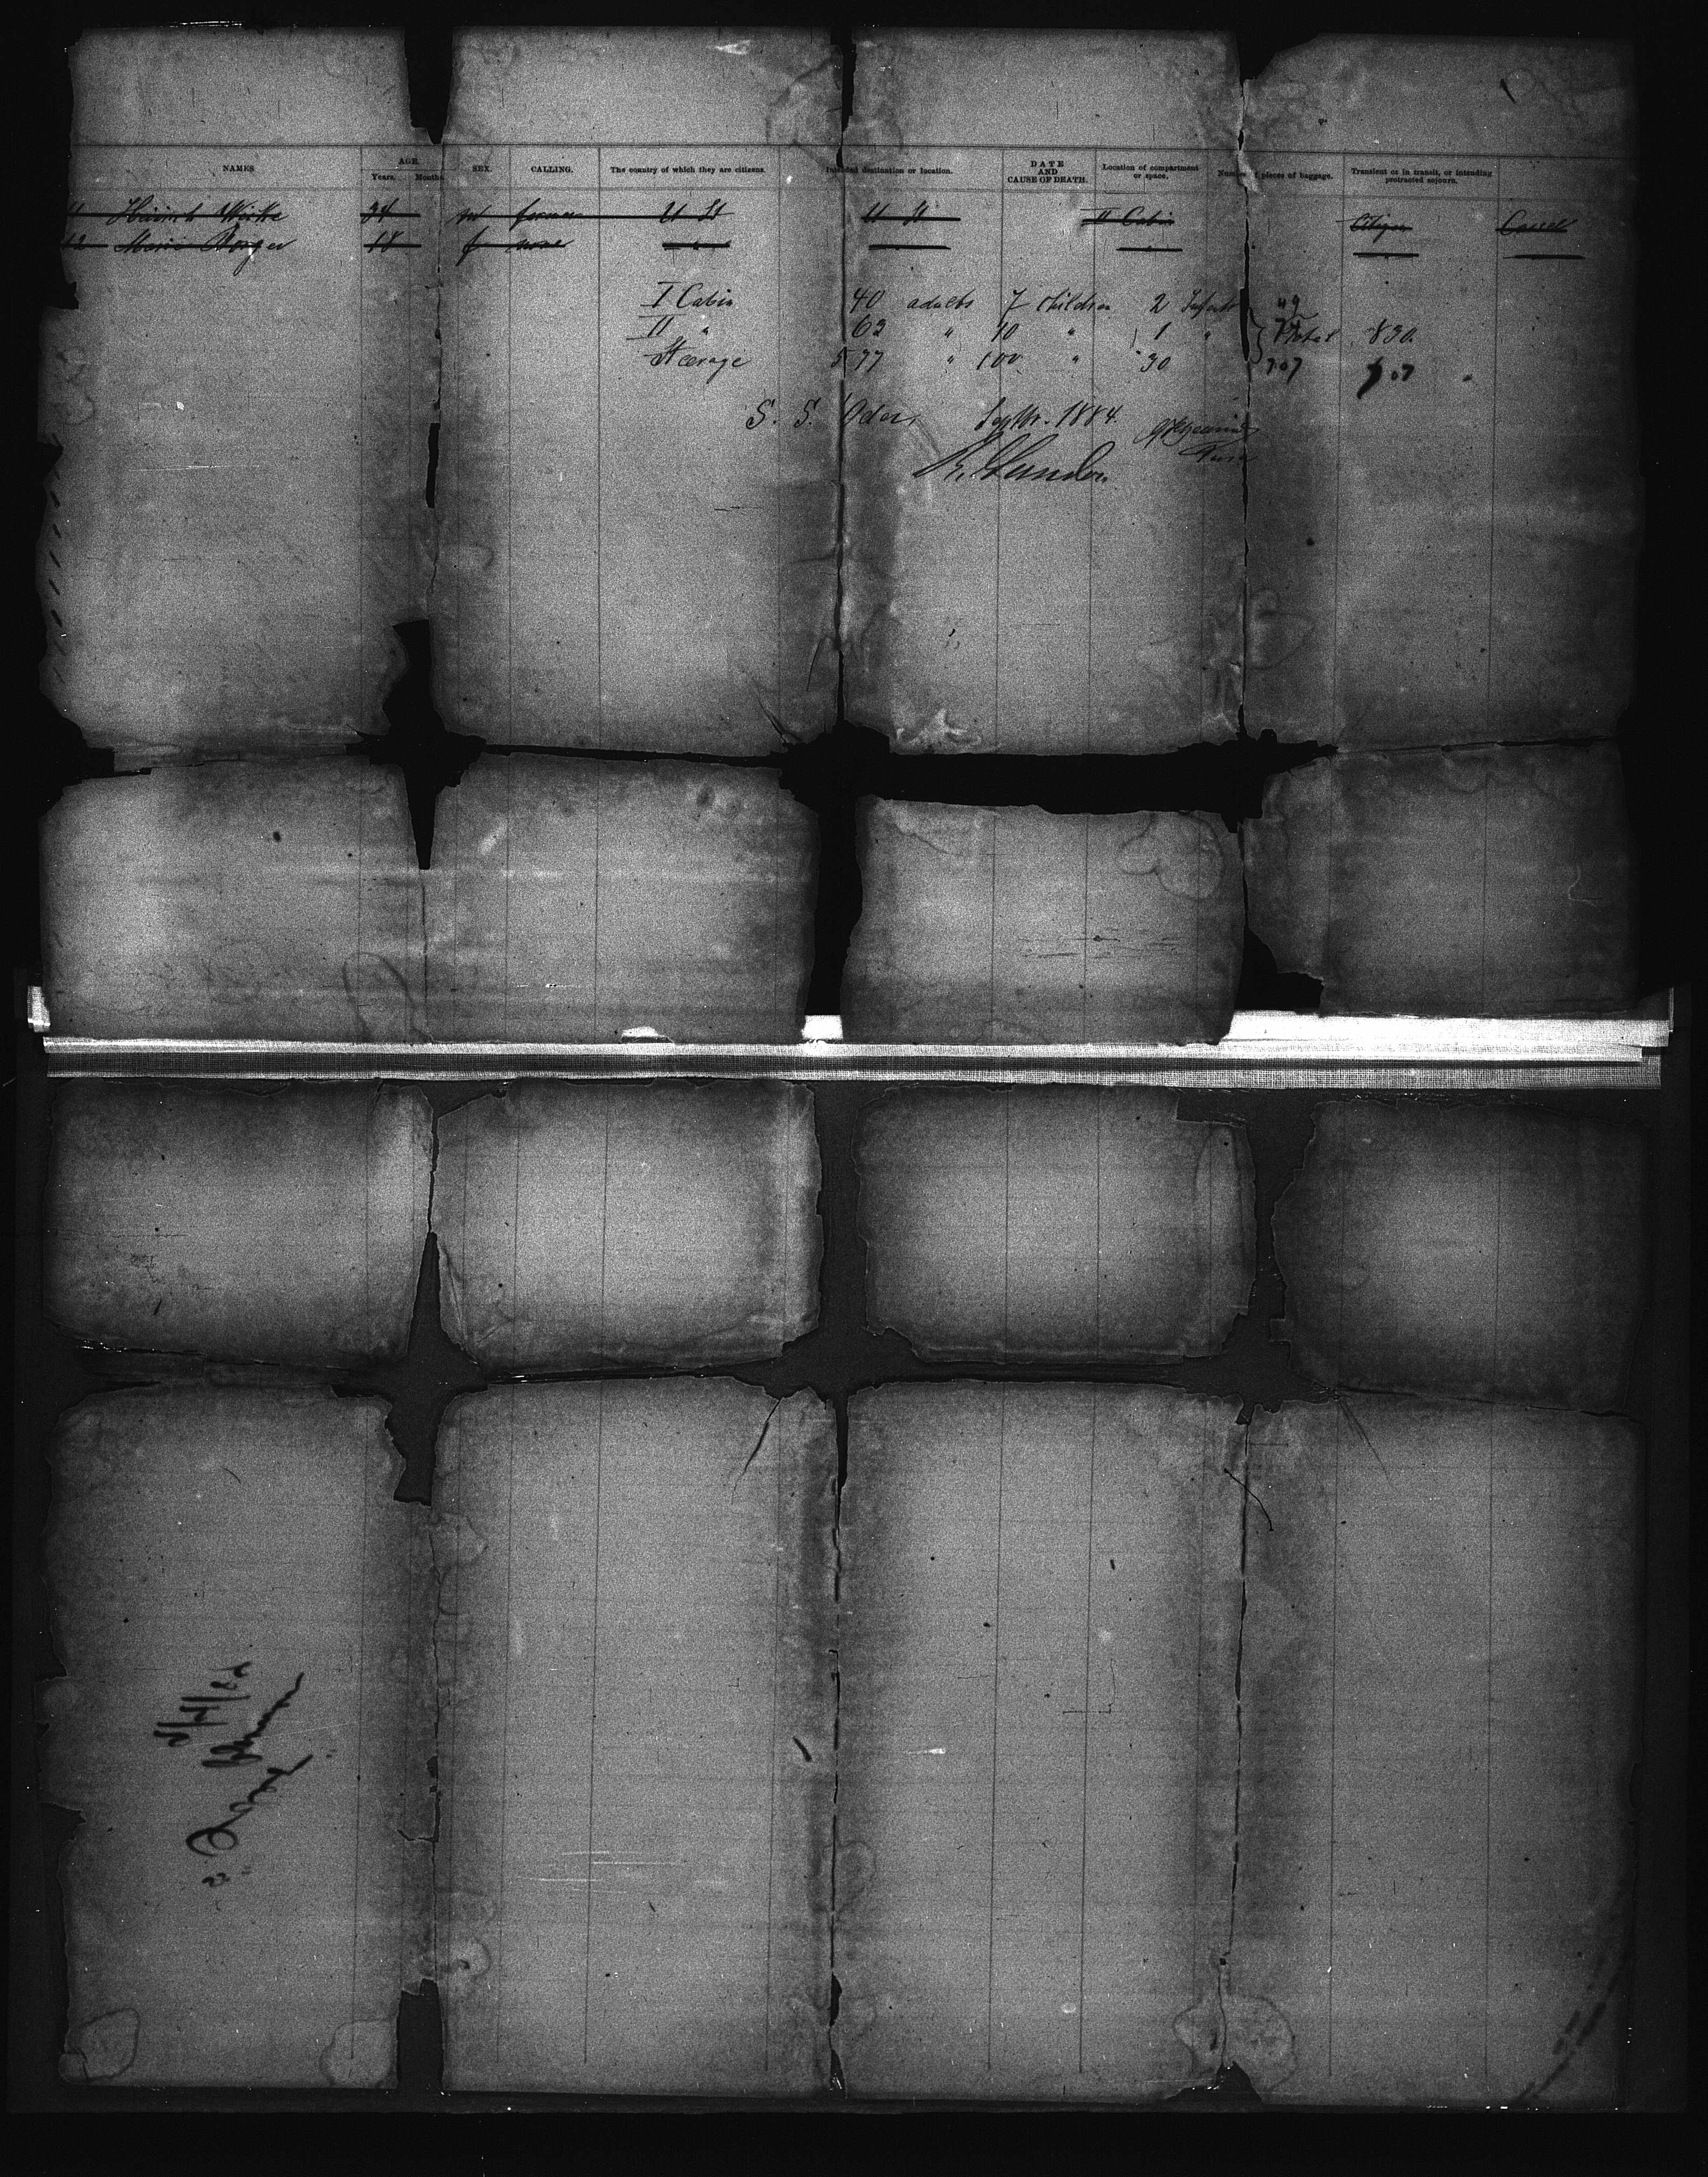 NAMES AGE. Years. Months SEX. CALLING. The country of which they are citizens. Intended destination or location. DATE AND CAUSE OF DEATH. Location of compartment or space. Number pieces of baggage. Transient or in transit, or intending protracted sojourn.
11 Heinrich 34 m farmer U St U St II Cabin Citizen Cassel
12 Marie Berger 18 f none
I Cabin 40 adults 7 children 2 Infants 49
II " 63 " 10 " 1 " 74 Total 830.
Steerage 577 " 100 " 30 707 707
S. S. Oder, Septbr. 1884.